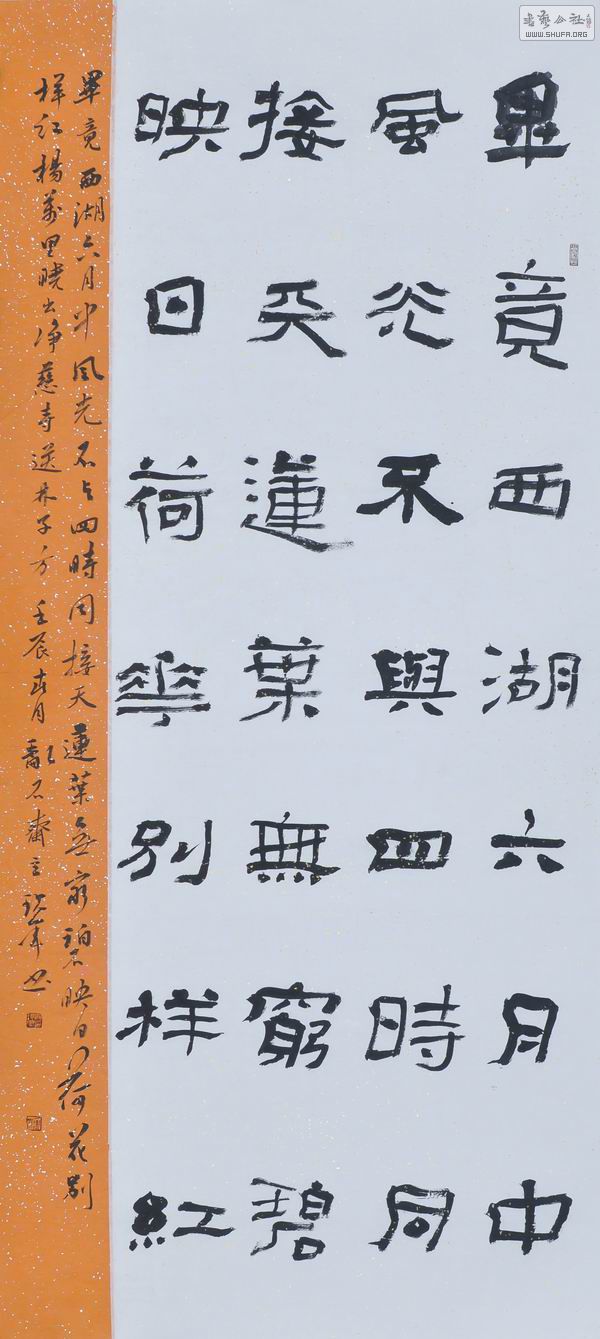 畢竟西湖六月中
風光不與四時同
接天蓮葉無窮碧
映日荷華別样紅
畢竟西湖六月中風光不与四時同接天蓮葉無窮碧映日荷花別
样红楊萬里曉出净慈寺送林子方壬辰春月石齋主峰书
書藝公社
WWW.SHUFA.ORG